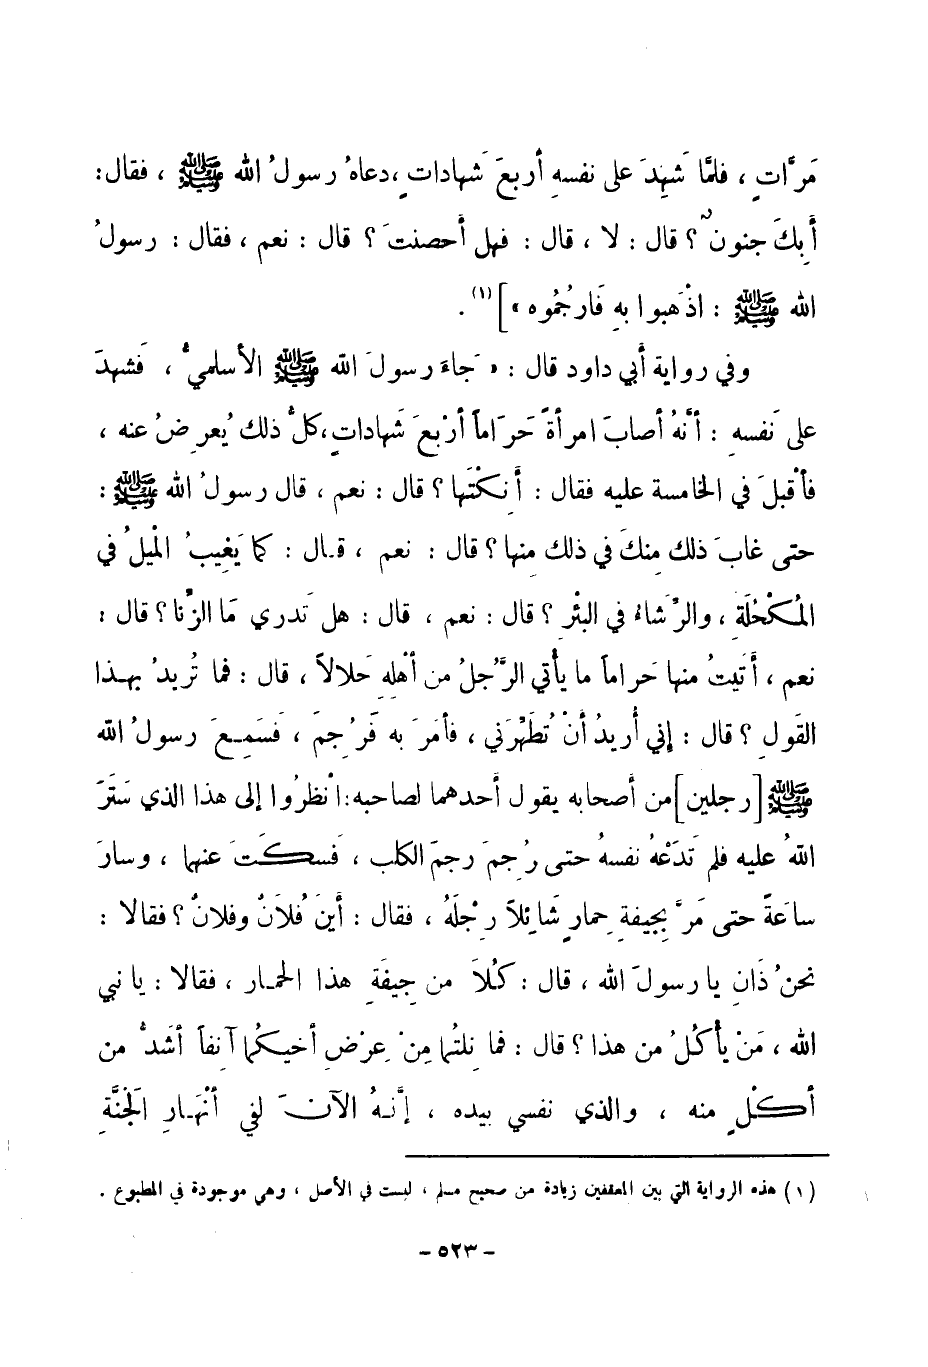 مَرَّاتٍ ، فلمَّا شَهِدَ على نفسهِ أربعَ شهاداتٍ ،دعاهُ رسولُ الله ﷺ ، فقال :
أَبِكَ جنونٌ ؟ قال : لا ، قال : فهل أحصنتَ ؟ قال : نعم ، فقال : رسولُ
الله ﷺ : اذْهبوا بهِ فَارجُمُوه » ] (١) .
وفي رواية أبي داود قال : « جَاءَ رسولَ الله ﷺ الأسلميُّ ، فَشهدَ
على نَفسهِ : أنَّهُ أصابَ امرأةً حَرَاماً أرْبعَ شَهاداتٍ،كلُّ ذلك يُعرِضُ عنه ،
فأقْبلَ في الخامسة عليه فقال : أَنِكْتَها ؟ قال : نعم ، قال رسولُ الله ﷺ :
حتى غابَ ذلك مِنكَ في ذلك مِنها ؟ قال : نعم ، قـال : كما يَغِيبُ المْيلُ في
المُكْحُلَةِ ، والرِّشاءُ في البئْرِ ؟ قال : نعم ، قال : هل تَدري مَا الزِّنا ؟ قال :
نعم ، أَتَيتُ منها حَراماً ما يأتي الرَّجلُ من أهْلِهِ حَلالاً ، قال : فما تُريدُ بهـذا
القَولِ ؟ قال : إني أُريدُ أَنْ تُطَهِّرَني ، فأمَرَ به فَرُجِمَ ، فَسَمِـعَ رسولُ الله
ﷺ [رجلين] من أصحابه يقول أحدهما لصاحبه: انْظرُوا إلى هذا الذي سَتَرَ
اللهُ عليه فلم تَدَعْهُ نفسهُ حتى رُجِمَ رجمَ الكلب ، فَسكَتَ عنهما ، وسارَ
ساعَةً حتى مَرَّ بِجيفةِ حِمارٍ شَائِلاً رِجْلَهُ ، فقال : أَينَ فُلاَنٌ وفلانٌ ؟ فقالا :
نحنُ ذَانِ يا رسولَ الله ، قال : كُلاَ من جِيفَةِ هذا الحمـار ، فقالا : يا نبي
الله ، مَنْ يأكُلُ من هذا ؟ قال : فما نِلتُما مِنْ عِرْضِ أخيكُما آنفاً أشَدُّ من
أكْلٍ منه ، والذي نفسي بيده ، إنَّـهُ الآنَ لفي أنْهَـارِ الجَنَّةِ
(١) هذه الرواية التي بين المعقفين زيادة من صحيح مسلم ، ليست في الأصل ، وهي موجودة في المطبوع .
- ٥٢٣ -